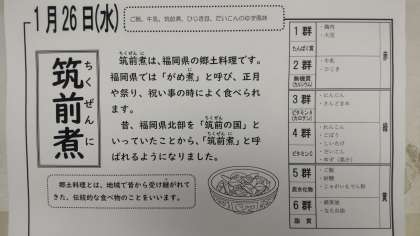 1月26日(水)
ご飯、牛乳、筑前煮、ひじき豆、だいこんのゆず風味
筑前煮
ちくぜんに
ちくぜんに
筑前煮は、福岡県の郷土料理です。
福岡県では「がめ煮」と呼び、正月
や祭り、祝い事の時によく食べられ
ます。
昔、福岡県北部を「筑前の国」と
いっていたことから、「筑前煮」と呼
ばれるようになりました。
郷土料理とは、地域で昔から受け継がれて
きた、伝統的な食べ物のことをいいます。
1群
たんぱく質
・鶏肉
・大豆
2群
無機質
(カルシウム)
・牛乳
・ひじき
3群
ビタミンA
(カロテン)
・にんじん
・さんどまめ
4群
ビタミンC
・れんこん
・ごぼう
・しいたけ
・だいこん
・ゆず(果汁)
5群
炭水化物
・ご飯
・砂糖
・じゃがいもでん粉
6群
脂質
・綿実油
・なたね油
赤
緑
黄